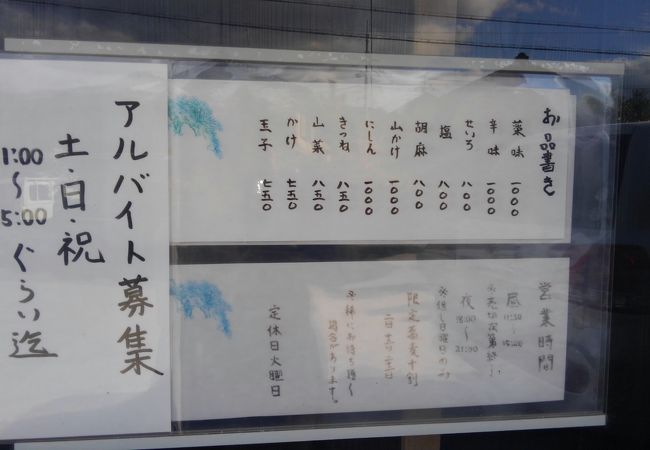 お品書き
薬味 一〇〇〇
辛味 一〇〇〇
せいろ 八〇〇
塩 八〇〇
胡麻 八〇〇
山かけ 一〇〇〇
にしん 一〇〇〇
きつね 八五〇
山菜 八五〇
かけ 七五〇
玉子 七五〇
営業時間
昼 11:30〜
※売切次第終了
夜 18:00〜21:00
限定蕎麦十割
※稀にお待ち頂く
場合があります。
定休日火曜日
アルバイト募集
土・日・祝
1:00〜5:00ぐらい迄